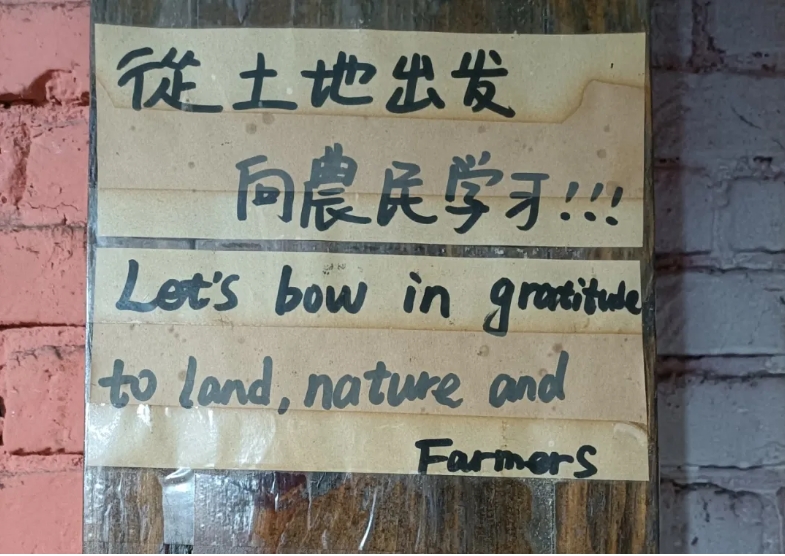 從土地出发
向農民学习!!!
Let's bow in gratitude
to land, nature and
Farmers